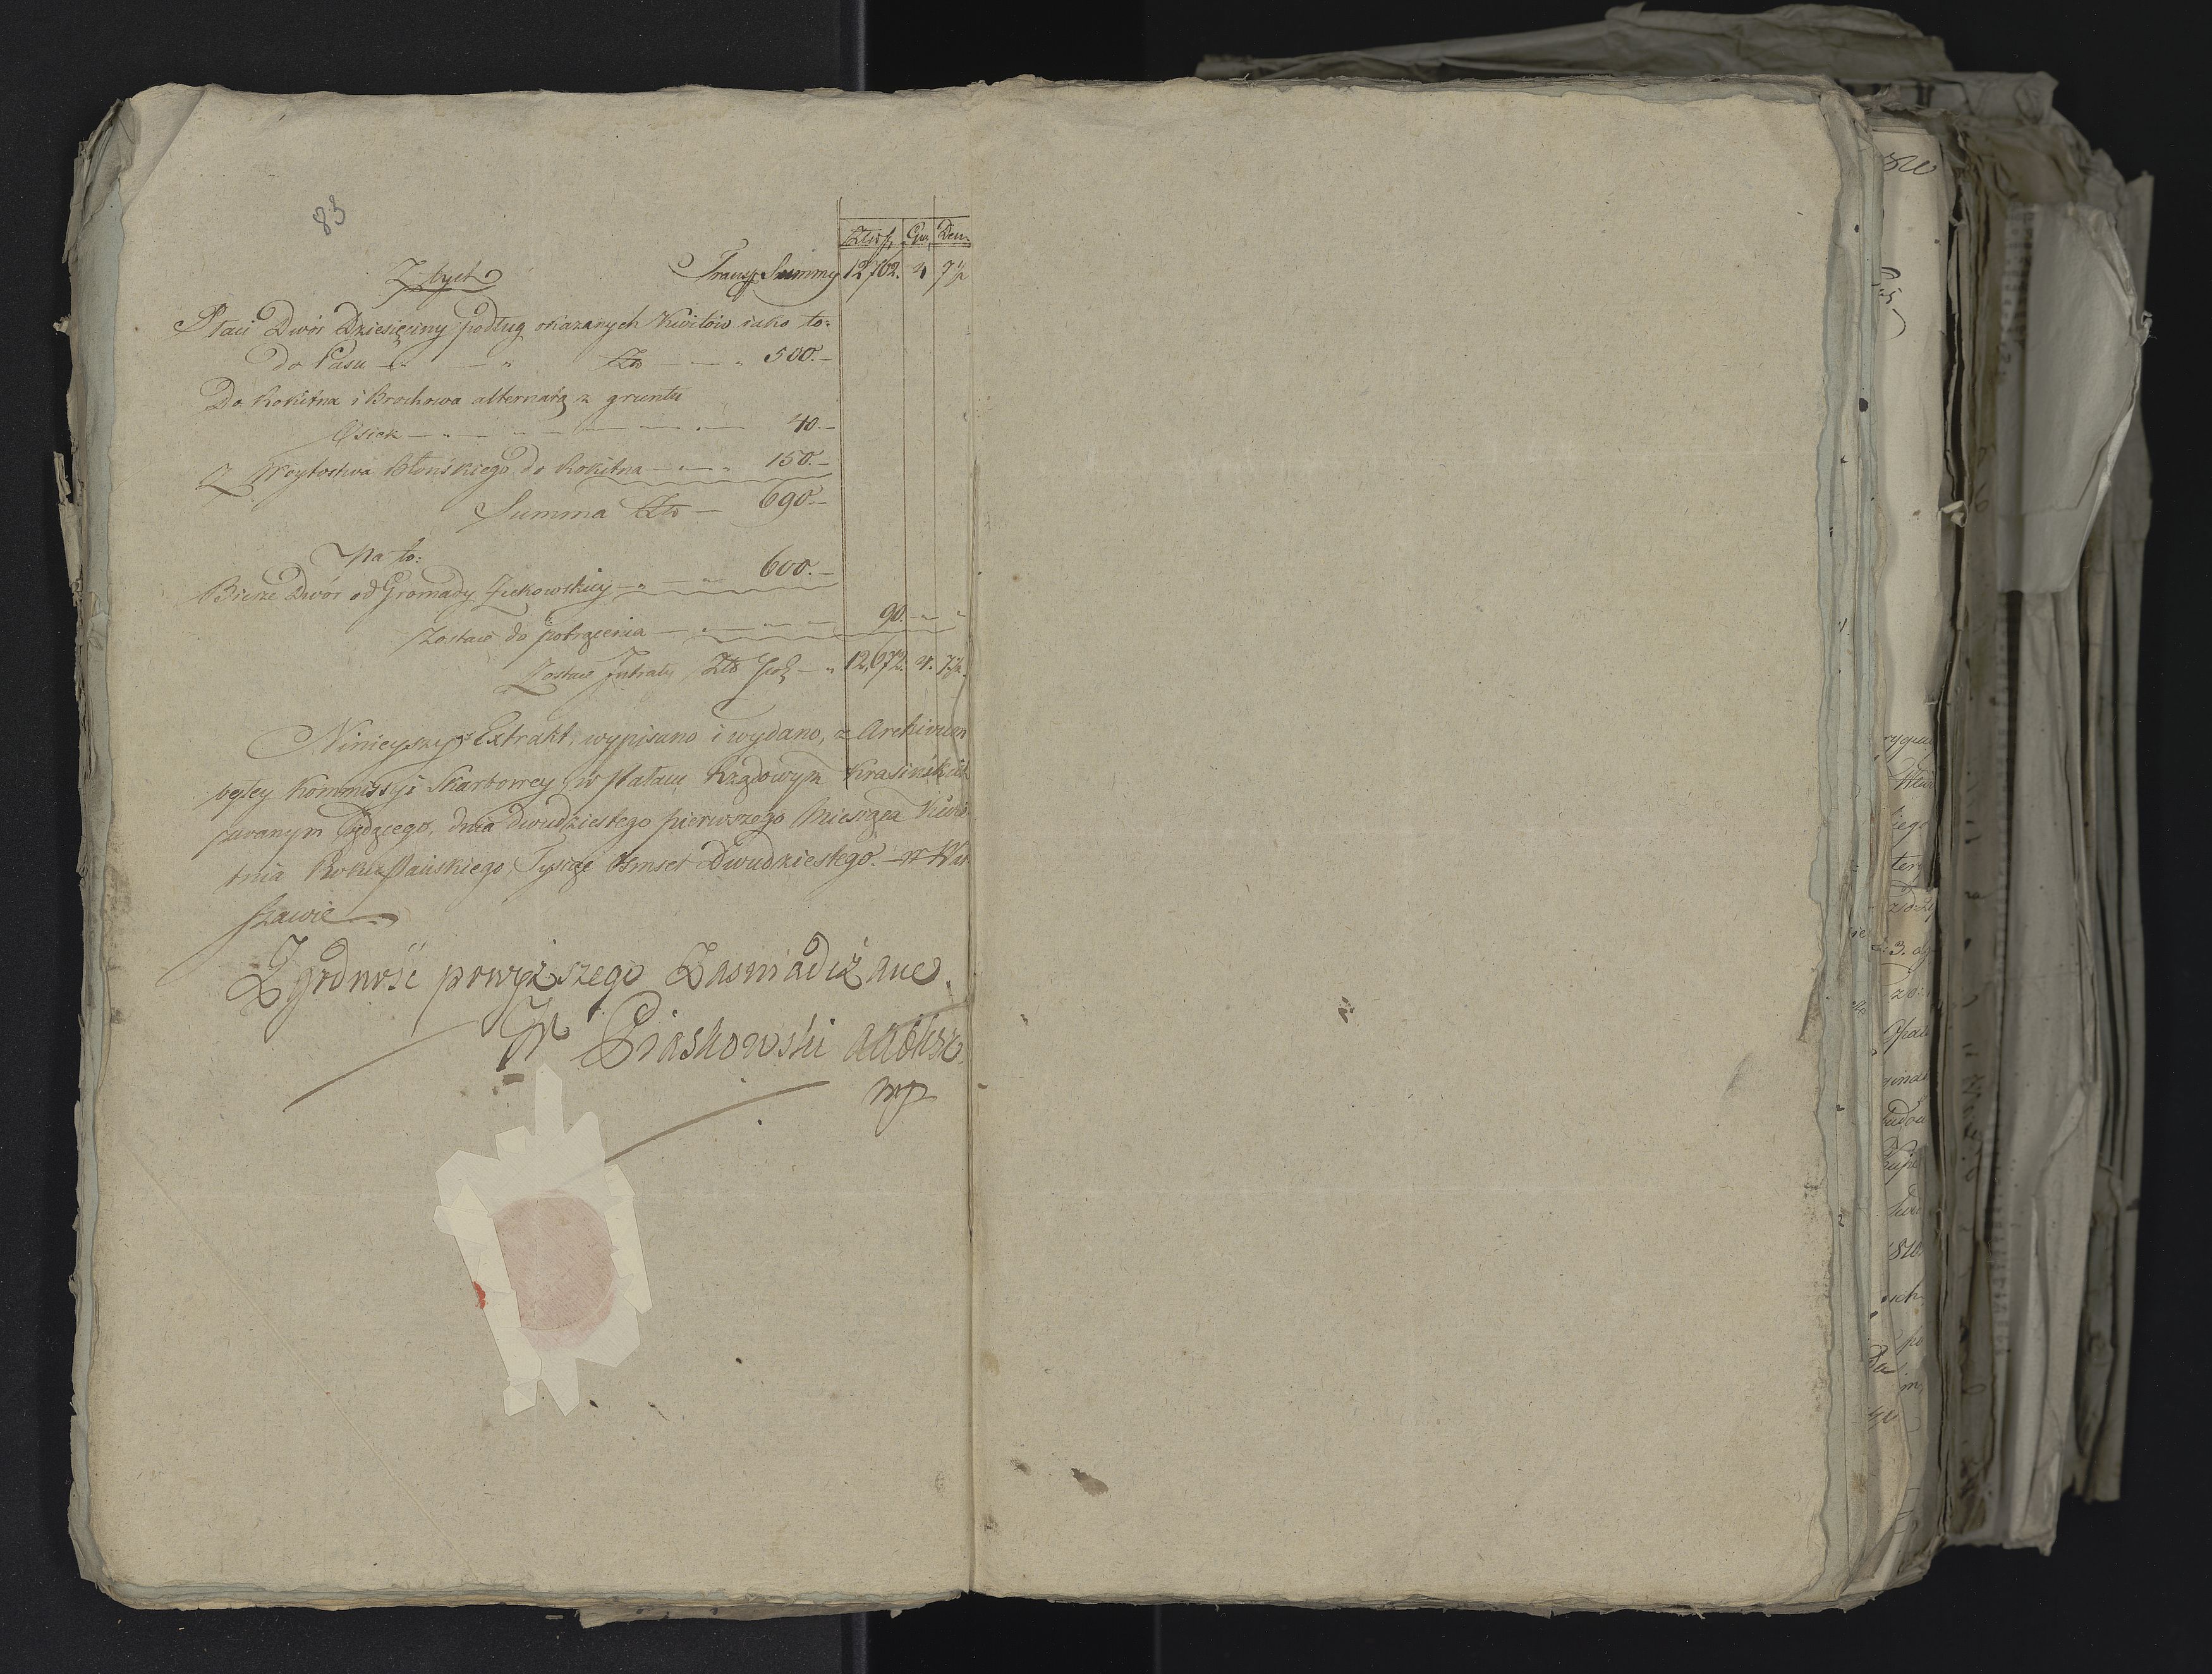 83
Złotp. Gr. Den.
Z tych Transp. Summy 12,762. 4 7½
Płaci Dwór Dziesięciny podług okazanych Kwitów iako to:
do Pasu Złt 500.—
Do Rokitna i Brochowa alternatą z gruntu
Osiek 40.—
Z Woytostwa Błońskiego do Rokitna 150.—
Summa Złt — 690.—
Na to:
Bierze Dwór od Gromady Żukowskiey 600.—
Zostaie do potrącenia 90.
Zostaie Intraty Złt Pol 12,672. 4. 7½.
Ninieyszy Extrakt, wypisano i wydano, z Archivum
byłey Kommissyi Skarbowey w Pałacu Rządowym Krasińskich
zwanym będącego, dnia dwudziestego pierwszego Miesiąca Kwie
tnia Roku Pańskiego Tysiąc Ośmset Dwudziestego. w War
szawie
Zgodność powyższego Zaswiadczam
Piaskowski
mp